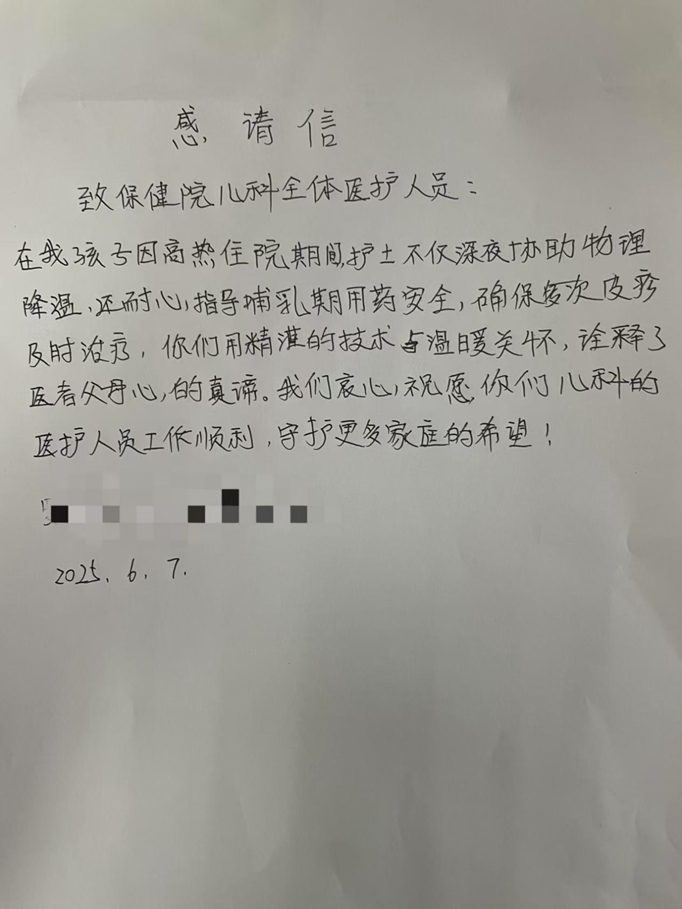 感请信
致保健院儿科全体医护人员：
在我孩子因高热住院期间,护士不仅深夜协助物理
降温,还耐心,指导哺乳期用药安全,确保多次皮疹
及时治疗,你们用精湛的技术与温暖关怀,诠释了
医者父母心,的真谛。我们衷心,祝愿,你们儿科的
医护人员工作顺利,守护更多家庭的希望!
2025.6.7.